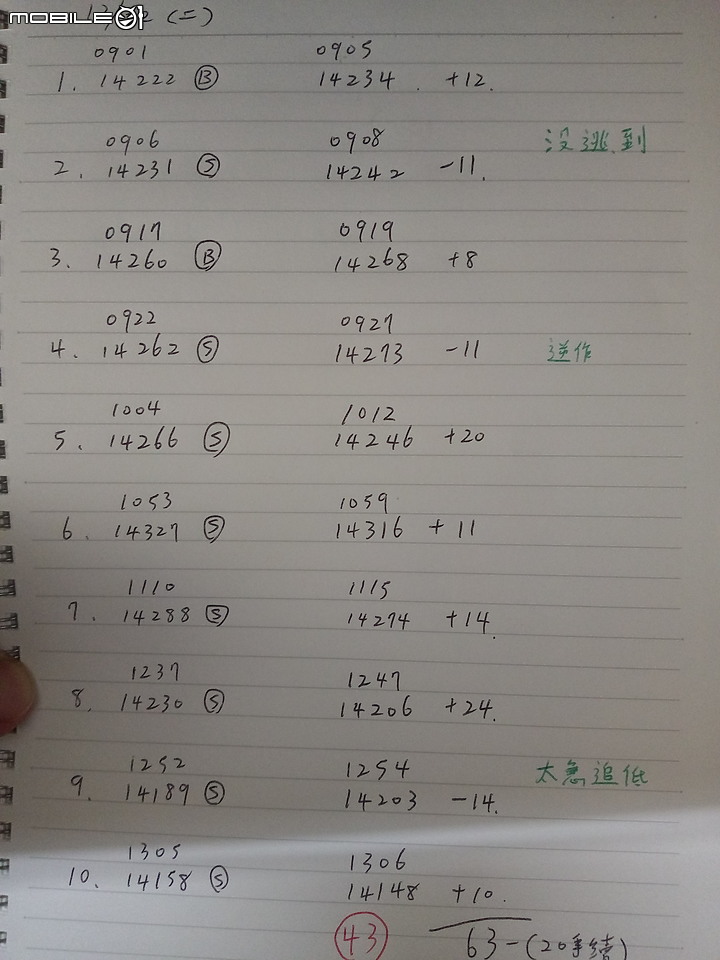 MOBILE01
(二)
0901 0905
1. 14222 Ⓑ 14234 +12.
0906 0908 没逃到
2. 14231 Ⓢ 14242 -11.
0917 0919
3. 14260 Ⓑ 14268 +8
0922 0927
4. 14262 Ⓢ 14273 -11 逆作
1004 1012
5. 14266 Ⓢ 14246 +20
1053 1059
6. 14327 Ⓢ 14316 +11
1110 1115
7. 14288 Ⓢ 14274 +14.
1237 1247
8. 14230 Ⓢ 14206 +24.
1252 1254 太急追低
9. 14189 Ⓢ 14203 -14.
1305 1306
10. 14158 Ⓢ 14148 +10.
43 63-(20手續)